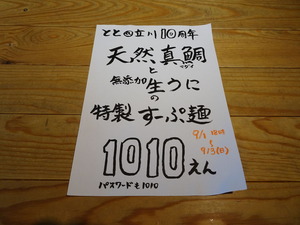 とと四立川10周年
天然真鯛
マダイ
と
無添加生うに
の
特製すーぷ麺
1010えん
パスワードも1010
9/1
9/13(日)